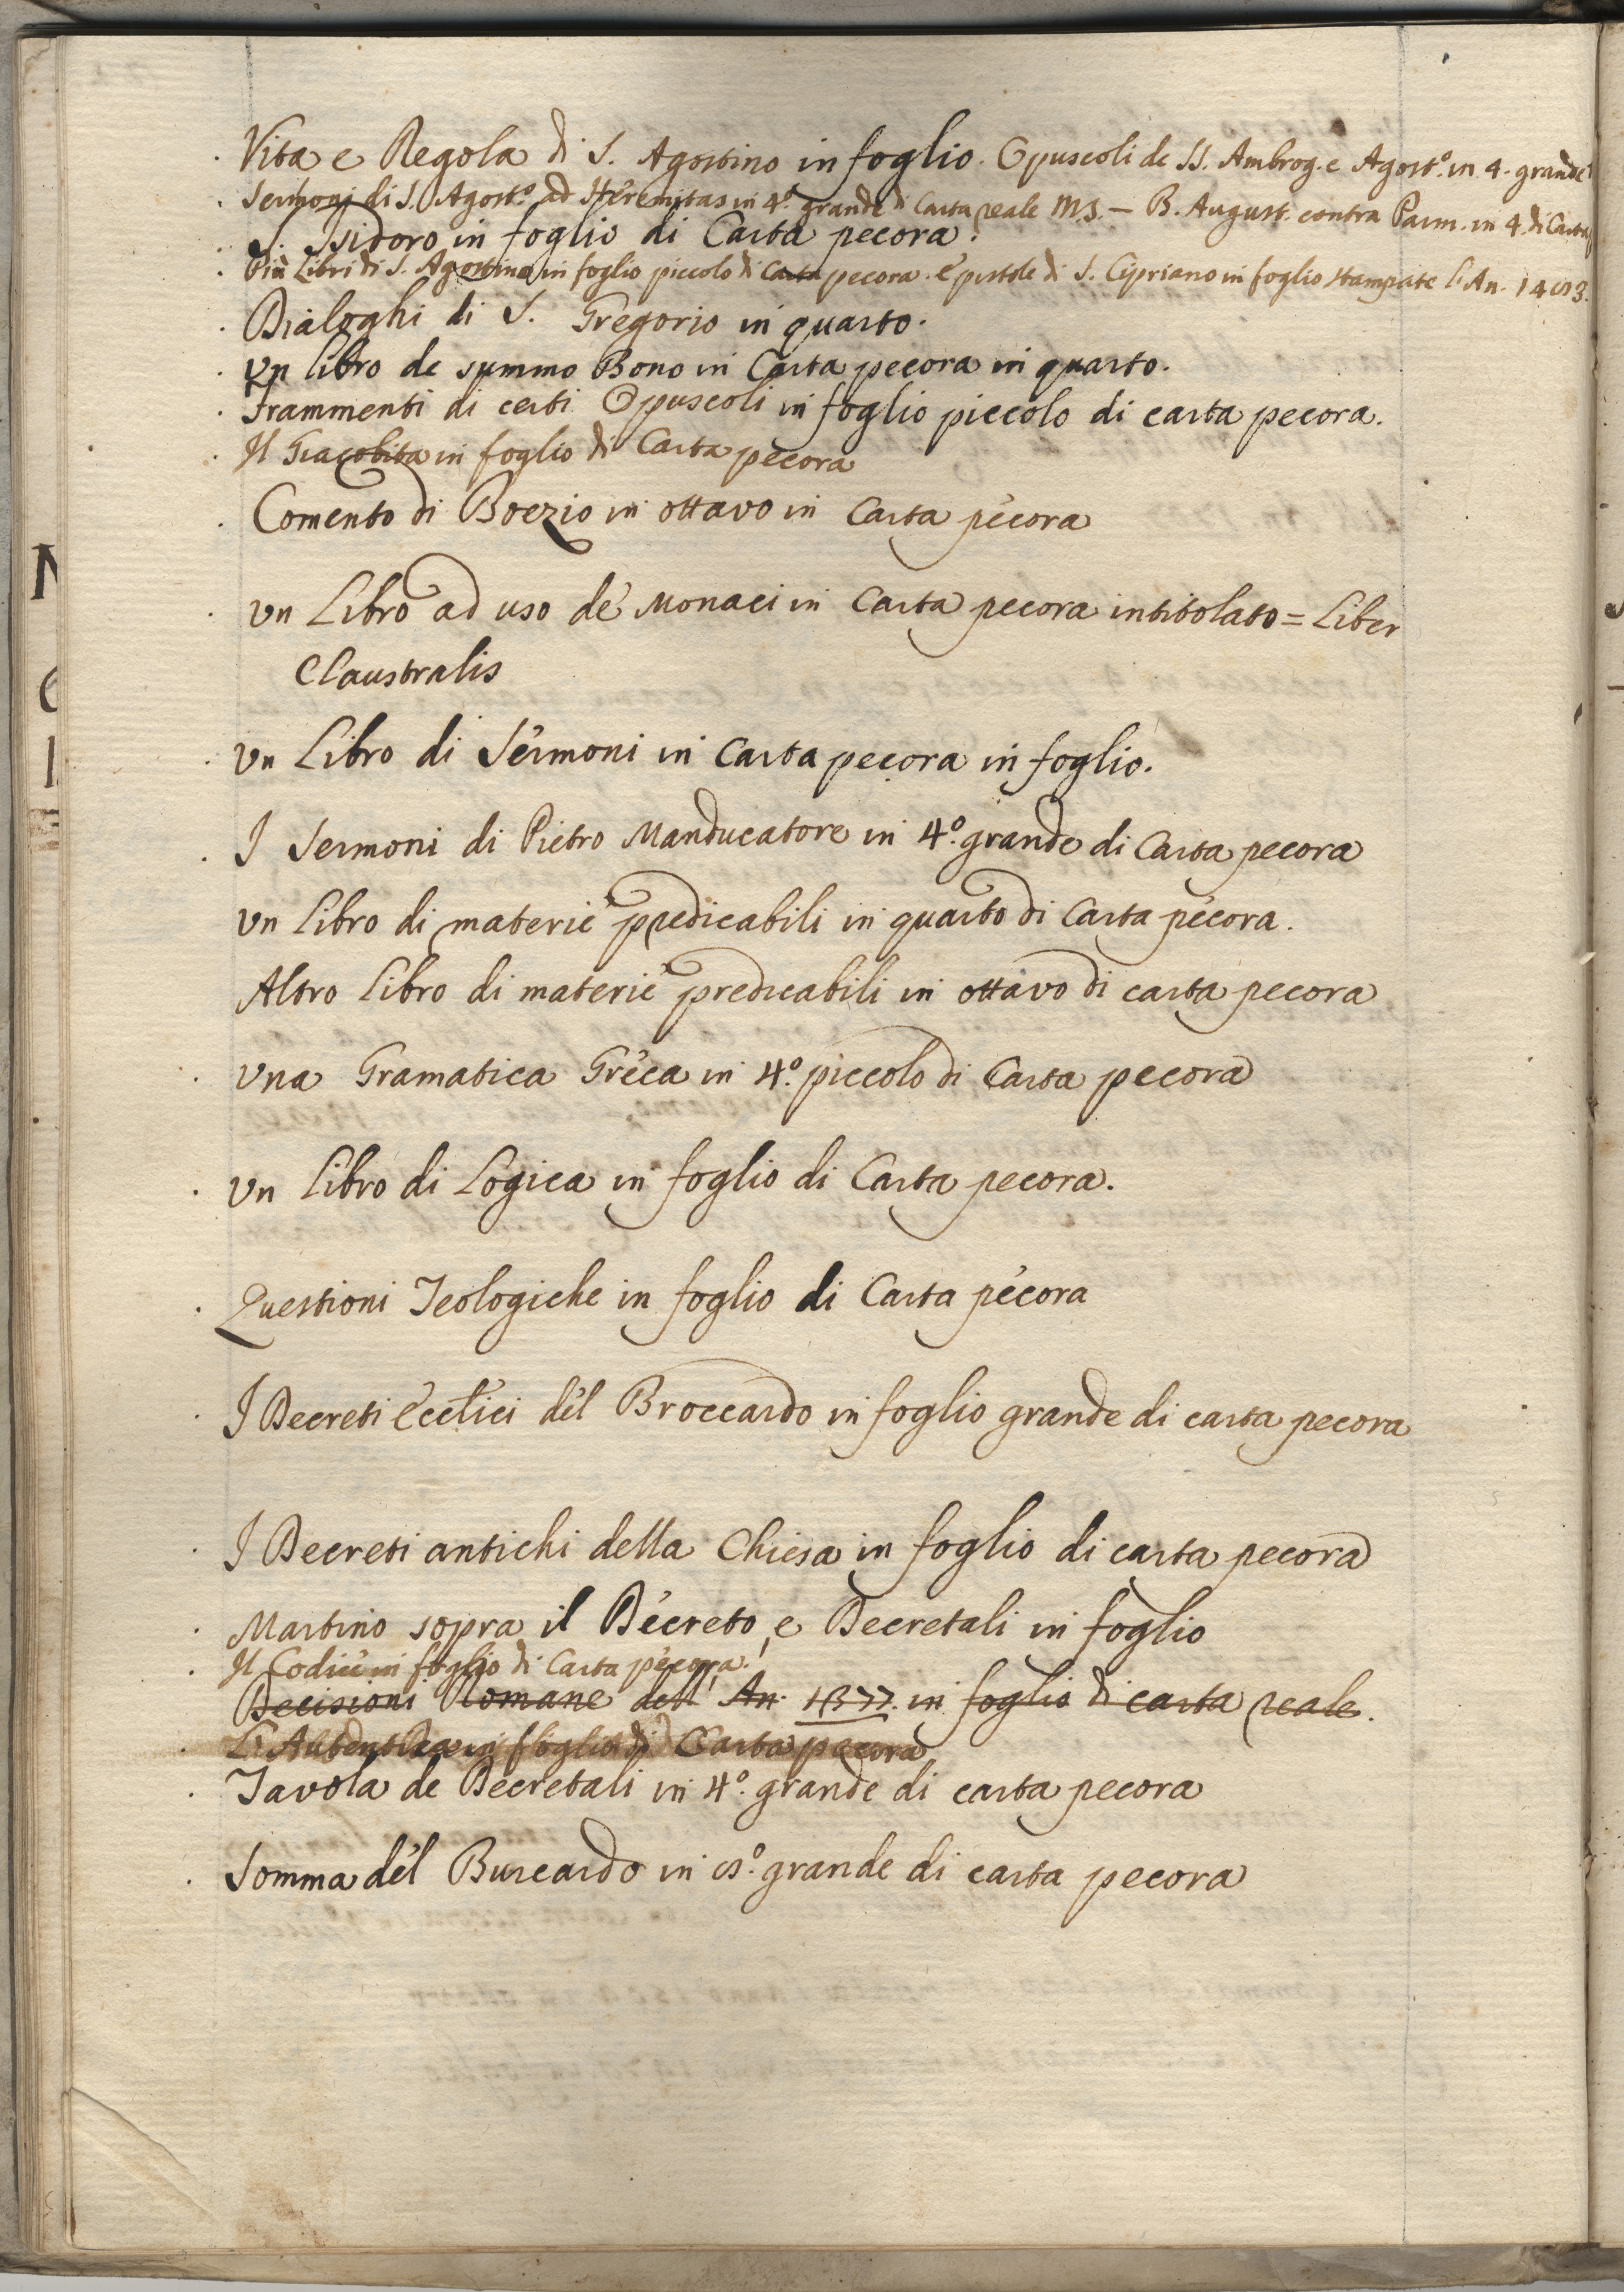 Vita e Regola di S. Agostino in foglio. Opuscoli de SS. Ambrog. e Agost.º in 4. grande
Sermoni di S. Agost.º ad Heremitas in 4.º grande di Carta reale M.S. — B. August. contra Parm. in 4. di Carta
S. Isidoro in foglio di Carta pecora.
Più Libri di S. Agostino in foglio piccolo di Carta pecora. Epistole di S. Cipriano in foglio stampate l'An. 1483.
Dialoghi di S. Gregorio in quarto.
Un libro de summo Bono in Carta pecora in quarto.
Frammenti di certi Opuscoli in foglio piccolo di carta pecora.
Il Giacobita in foglio di Carta pecora
Comento di Boezio in ottavo in Carta pecora
Un Libro ad uso de' Monaci in Carta pecora intitolato = Liber
Claustralis
Un Libro di Sermoni in Carta pecora in foglio.
I Sermoni di Pietro Manducatore in 4.º grande di Carta pecora
Un Libro di materie predicabili in quarto di Carta pecora.
Altro Libro di materie predicabili in ottavo di carta pecora
Una Gramatica Greca in 4.º piccolo di Carta pecora
Un Libro di Logica in foglio di Carta pecora.
Questioni Teologiche in foglio di Carta pecora
I Decreti Eccl'ici del Broccardo in foglio grande di carta pecora
I Decreti antichi della Chiesa in foglio di carta pecora
Martino sopra il Decreto, e Decretali in foglio
Il Codice in foglio di Carta pecora.
Decisioni Romane dell' An. 1377. in foglio di carta reale.
L'Autentica in foglio di Carta pecora
Tavola de Decretali in 4.º grande di carta pecora
Somma del Burcardo in 8.º grande di carta pecora